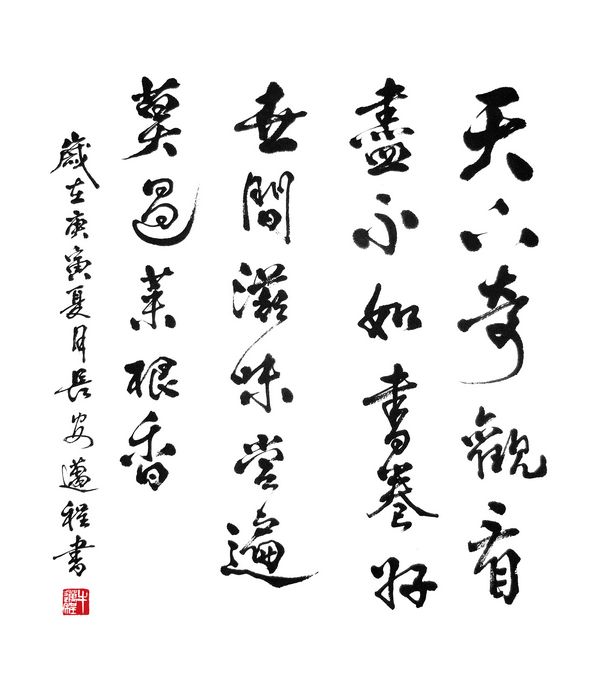 天下奇觀看
盡不如書卷好
世間滋味嘗遍
莫過菜根香
歲在庚寅夏月長安邁程書